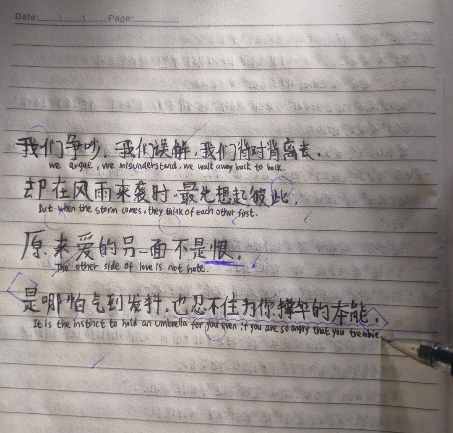 Date: Page:
我们争吵,我们误解,我们背对背离去,
we argue, we misunderstand, we walk away back to back
却在风雨来袭时,最先想起彼此,
But when the storm comes, they think of each other first.
原来爱的另一面不是恨,
The other side of love is not hate.
是哪怕气到发抖,也忍不住为你撑伞的本能,
It is the instinct to hold an umbrella for you even if you are so angry that you tremble